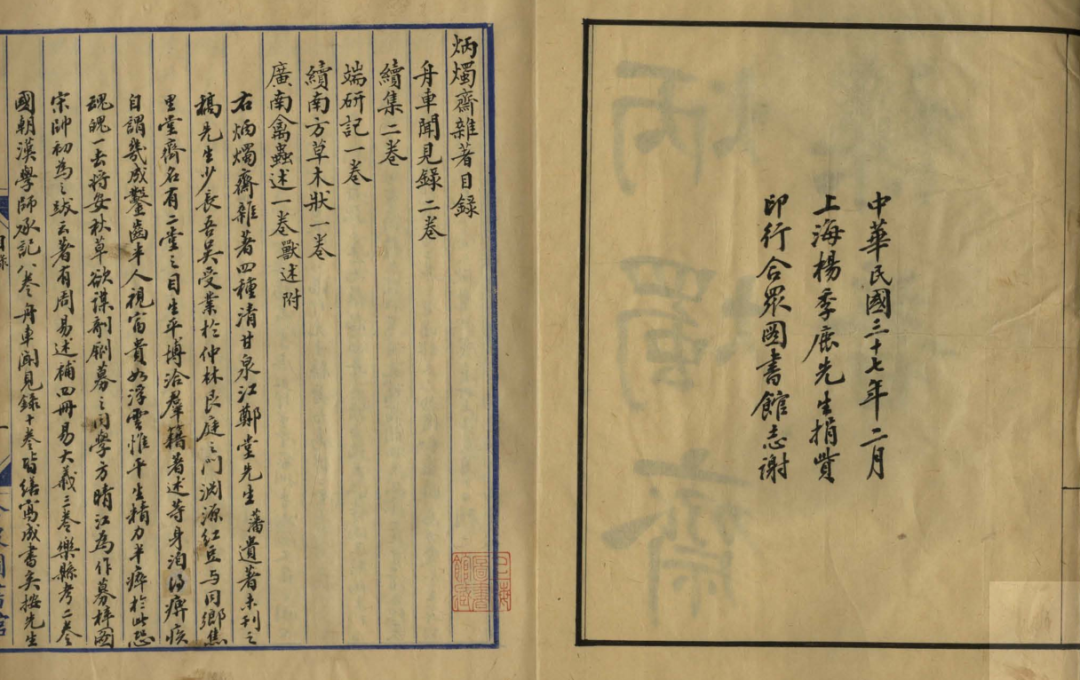 中華民國三十七年二月
上海楊季鹿先生捐貲
印行合眾圖書館志謝
炳燭齋雜著目錄
舟車聞見錄二卷
續集二卷
端研記一卷
續南方草木狀一卷
廣南禽蟲述一卷獸述附
右炳燭齋雜著四種清甘泉江鄭堂先生藩遺著未刊之
稿先生少長吾吳受業於仲林艮庭之門淵源紅豆与同鄉焦
里堂齊名有二堂之目生平博洽羣籍著述等身洎得痹疾
自謂幾成鑿齒半人視富貴如浮雲惟平生精力半瘁於此恐
魂魄一去將安秋草欲謀剞劂募之同學方晴江為作募梓圖
宋帥初為之跋云著有周易述補四冊易大義三卷樂縣考二卷
國朝漢學師承記八卷舟車聞見錄十卷皆繕寫成書矣按先生
目錄
一
合眾圖書館